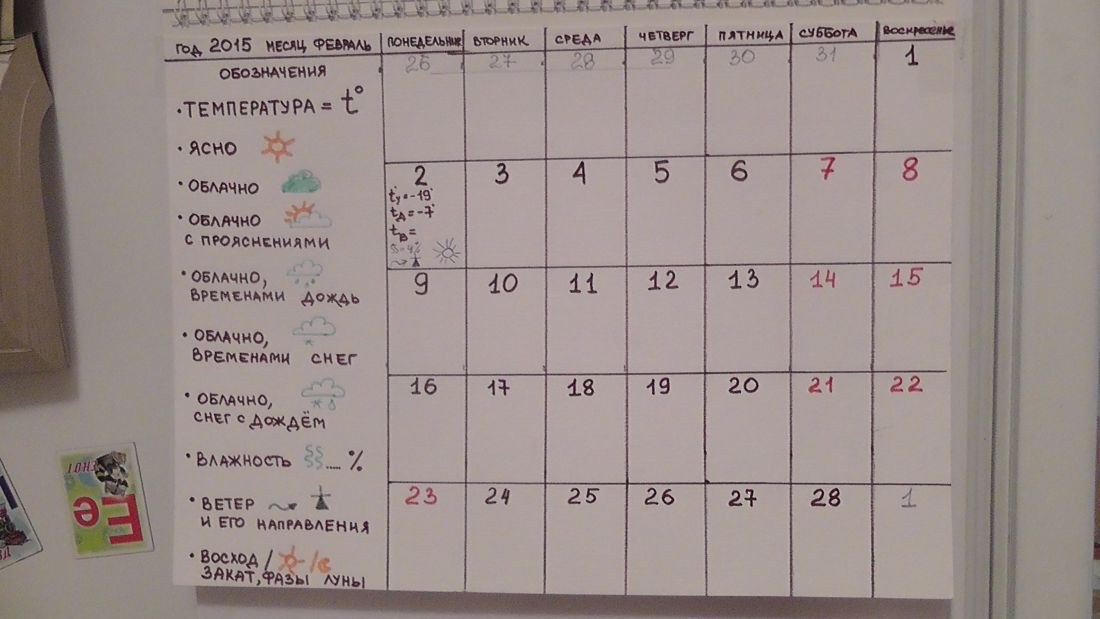 ГОД 2015 МЕСЯЦ ФЕВРАЛЬ ПОНЕДЕЛЬНИК ВТОРНИК СРЕДА ЧЕТВЕРГ ПЯТНИЦА СУББОТА ВОСКРЕСЕНЬЕ
26 27 28 29 30 31 1
ОБОЗНАЧЕНИЯ
• ТЕМПЕРАТУРА = t°
• ЯСНО
• ОБЛАЧНО
• ОБЛАЧНО
С ПРОЯСНЕНИЯМИ
• ОБЛАЧНО,
ВРЕМЕНАМИ ДОЖДЬ
• ОБЛАЧНО,
ВРЕМЕНАМИ СНЕГ
• ОБЛАЧНО,
СНЕГ С ДОЖДЁМ
• ВЛАЖНОСТЬ .... %
• ВЕТЕР
И ЕГО НАПРАВЛЕНИЯ
• ВОСХОД /
ЗАКАТ, ФАЗЫ ЛУНЫ
2 3 4 5 6 7 8
tу=-19°
tд=-7°
tв=
9 10 11 12 13 14 15
16 17 18 19 20 21 22
23 24 25 26 27 28 1
ЕНОТ
Ее